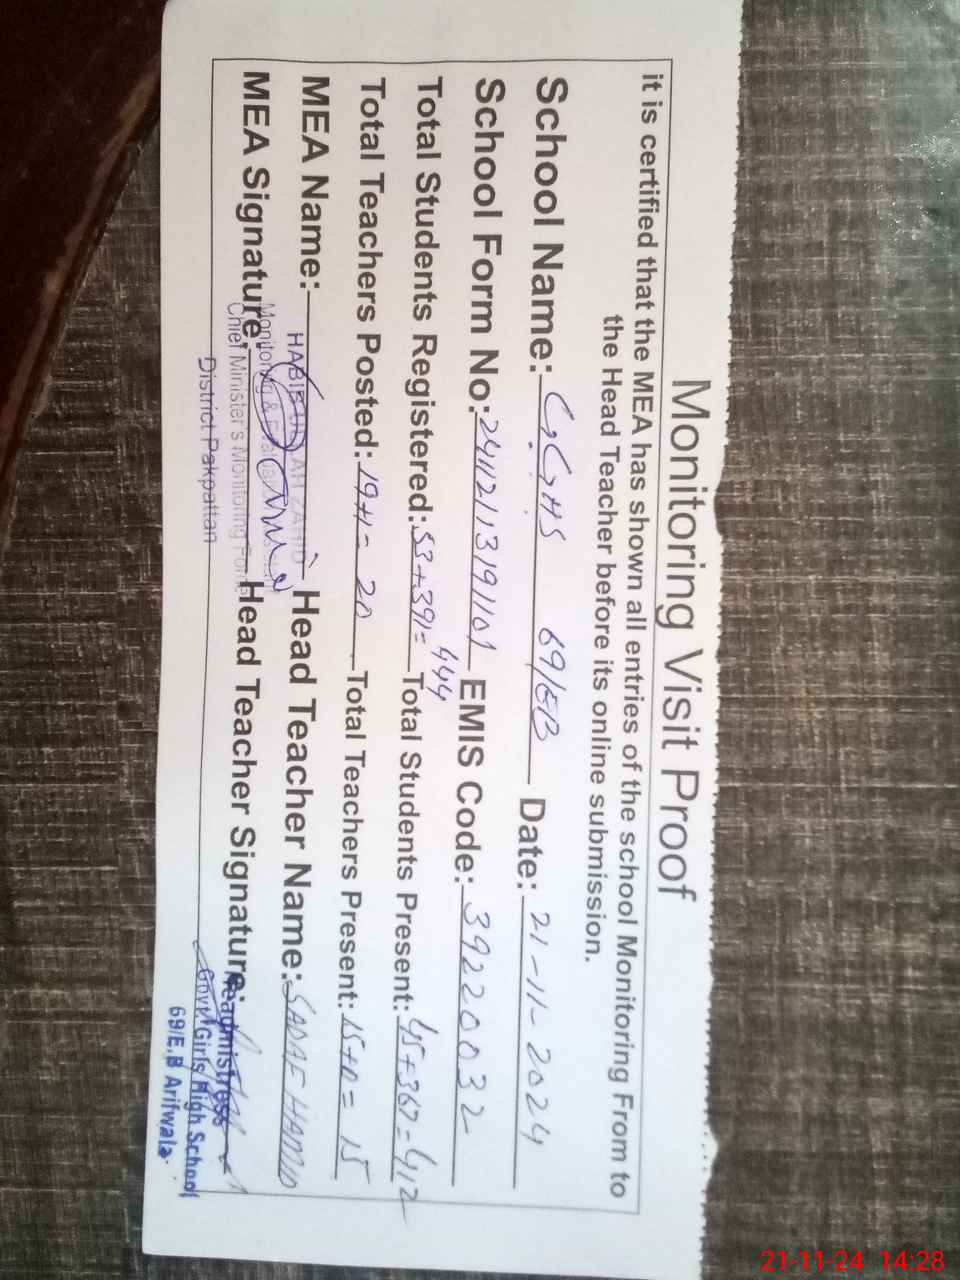 Monitoring Visit Proof
it is certified that the MEA has shown all entries of the school Monitoring From to
the Head Teacher before its online submission.
School Name: GGHS 69/EB Date: 21-11-2024
School Form No: 24112113191101 EMIS Code: 39220032
Total Students Registered: 53+391=444 Total Students Present: 45+367=412
Total Teachers Posted: 19+1=20 Total Teachers Present: 15+0=15
MEA Name: HABIB Head Teacher Name: SADAF HAMID
MEA Signature: Head Teacher Signature:
Monitoring &
Chief Minister's Monitoring Force
District Pakpattan
Headmistress
Govt. Girls High School
69/E.B Arifwala.
21-11-24 14:28